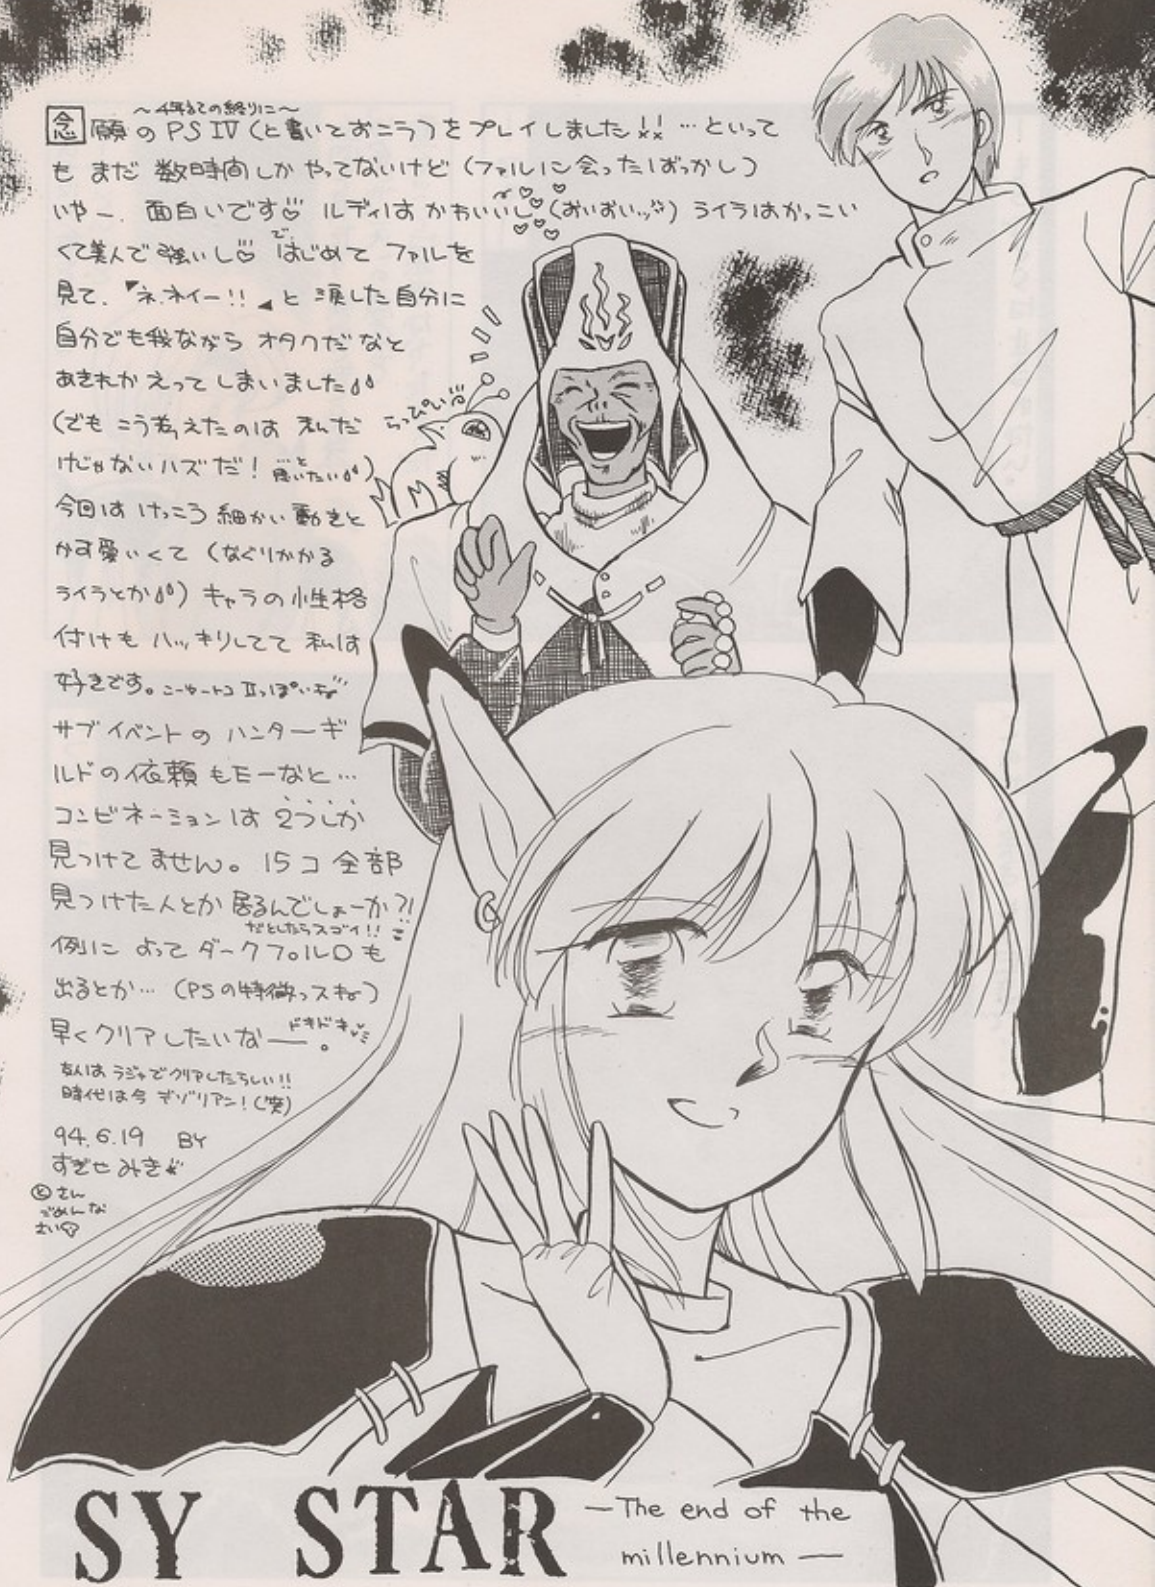 〜千年紀の終りに〜
念願のPSIV(と書いておこう)をプレイしました!! …といって
も まだ 数時間しか やってないけど (ファルに会ったばっかし)
いやー、面白いです♡ ルディはかわいいし♡(おいおい…) ライラはかっこい
くて美人で強いし♡ で、はじめて ファルを
見て、"ネ、ネイー!!" と 涙した自分に
自分でも我ながら オタクだ なと
あきれかえって しまいました
(でも こう考えたのは 私だ
けじゃないハズだ! …と思いたい)
らっぴい
今回は けっこう 細かい 動きと
か可愛いくて (なぐりかかる
ライラとか) キャラの性格
付けも ハッキリしてて 私は
好きです。
サブイベントの ハンターギ
ルドの依頼もモーなと…
コンビネーションは 2つしか
見つけてません。15コ 全部
見つけた人とか 居るんでしょーか?!
だとしたらスゴイ!!
例に よって ダークファルロも
出るとか… (PSの特徴っスね)
早くクリアしたいなー。 ドキドキ
友人は ラジャでクリアしたらしい!!
時代は今 デゾリアン!(笑)
94.6.19 BY
すぎせ みき
とさん
ごめんな
さい
SY STAR
—The end of the
millennium—